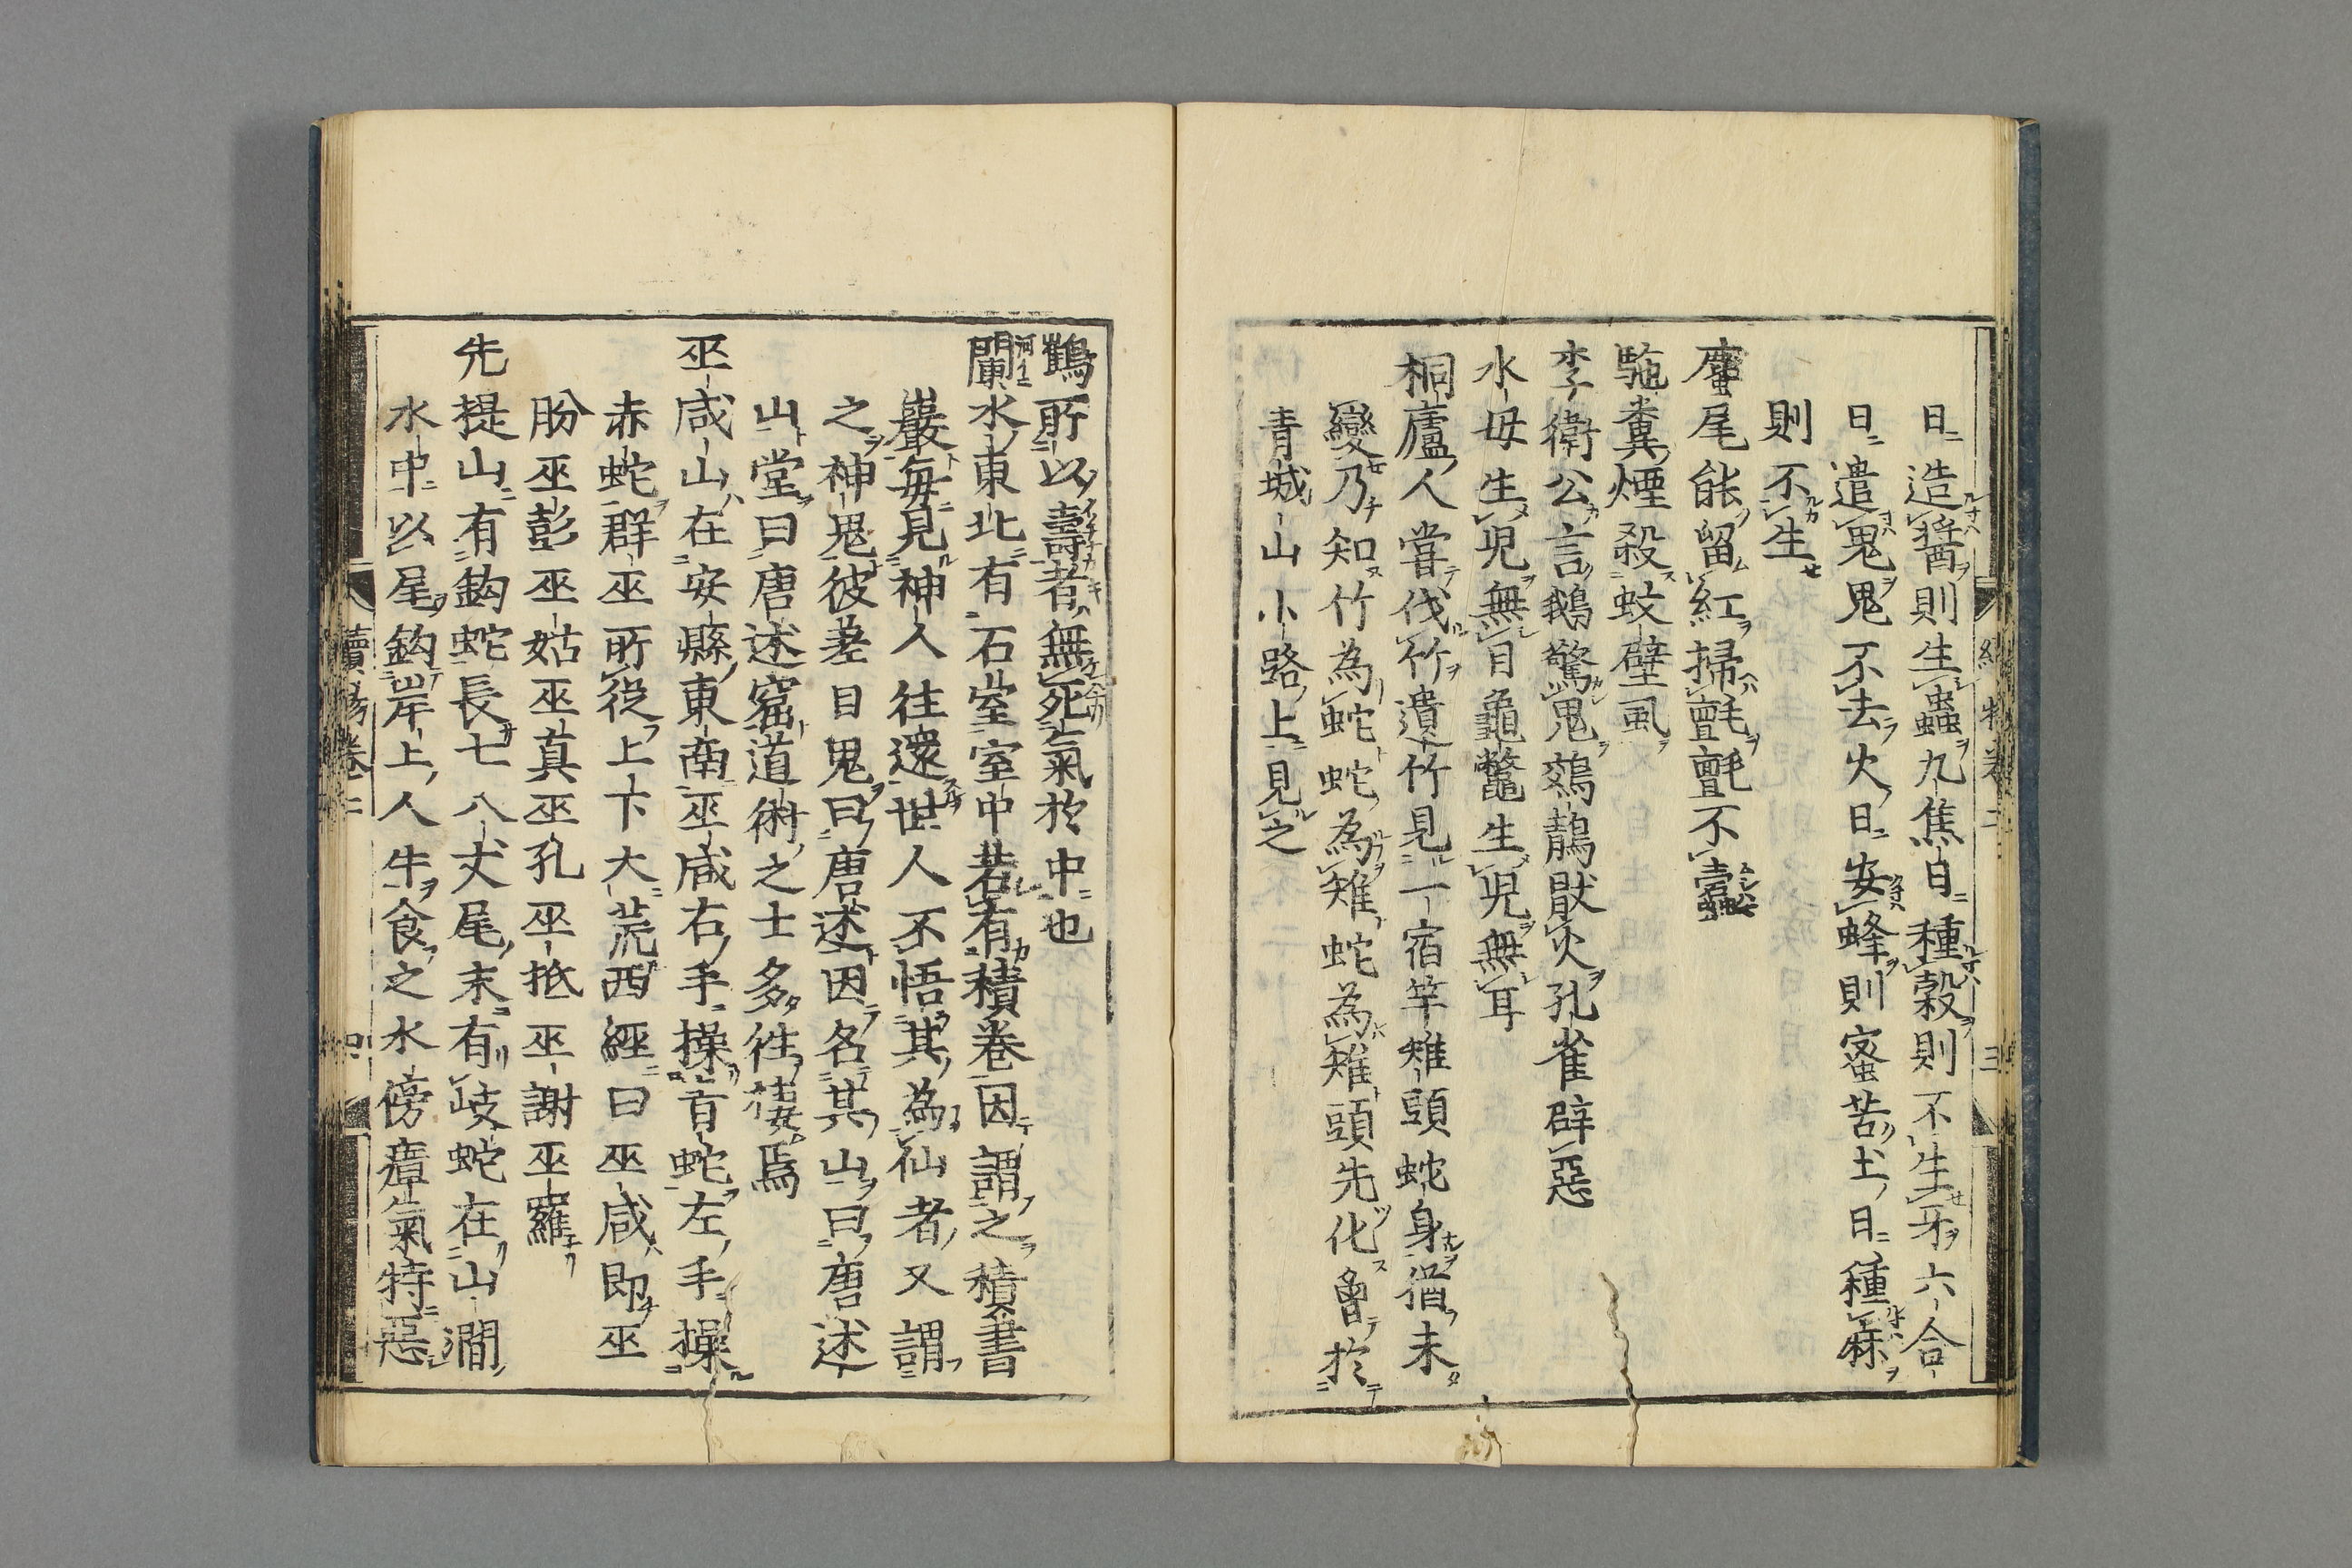 日造醬則生蟲九焦日種穀則不生牙六合
日遣鬼鬼不去火日安蜂則蜜苦土日種麻
則不生
麈尾能留紅掃氈氈不蠹
駞糞煙殺蚊壁虱
李衛公言鵝驚鬼鵁鶄厭火孔雀辟惡
水母生児無目龜鼈生児無耳
桐廬人嘗伐竹遺竹見一宿竿雉頭蛇身猶未
變乃知竹為蛇蛇為雉蛇為雉頭先化魯於
青城山小路上見之
鶴所以壽者無死氣於中也
闌水東北有石室室中若有積卷因謂之積書
巖毎見神人往還世人不悟其為仙者又謂
之神鬼彼羌目鬼曰唐述因名其山曰唐述
山堂曰唐述窟道術之士多往棲焉
巫咸山在安縣東南巫咸右手操青蛇左手操
赤蛇群巫所從上下大荒西經曰巫咸即巫
朌巫彭巫姑巫真巫孔巫抵巫謝巫羅
先提山有鈎蛇長七八丈尾末有岐蛇在山澗
水中以尾鈎岸上人牛食之水傍瘴氣特惡
續博物卷二